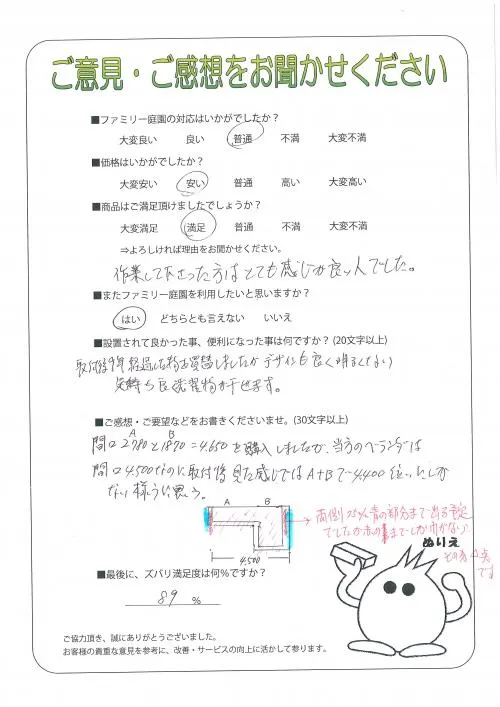 ご意見・ご感想をお聞かせください
■ファミリー庭園の対応はいかがでしたか？
大変良い 良い 普通 不満 大変不満
■価格はいかがでしたか？
大変安い 安い 普通 高い 大変高い
■商品はご満足頂けましたでしょうか？
大変満足 満足 普通 不満 大変不満
⇒よろしければ理由をお聞かせください。
作業して下さった方はとても感じが良い人でした。
■またファミリー庭園を利用したいと思いますか？
はい どちらとも言えない いいえ
■設置されて良かった事、便利になった事は何ですか？ (20文字以上)
取付後 年経過した物を買替しましたがデザインも良く明るくていい
気持ち良く洗濯物が干せます。
■ご感想・ご要望などをお書きくださいませ。(30文字以上)
A B
間口2780と1870=4.650を購入しましたが、当方のベランダは
間口4.500なのに取付後見た感じではA+Bで4.400位しか
ない様うに思う。
A B
両側 青の部分まで出る予定
でしたが赤の までしか巾がない
4.500
ぬりえ
その為 点
です
■最後に、ズバリ満足度は何%ですか？
89 %
ご協力頂き、誠にありがとうございました。
お客様の貴重な意見を参考に、改善・サービスの向上に活かして参ります。